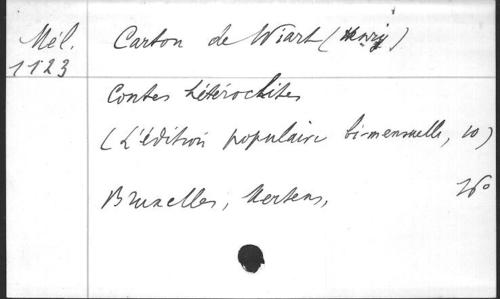 Mél. Carton de Wiart (Henry)
1123
Contes hétéroclites
(L'édition populaire bi-mensuelle, 10)
Bruxelles, Mertens, 16°